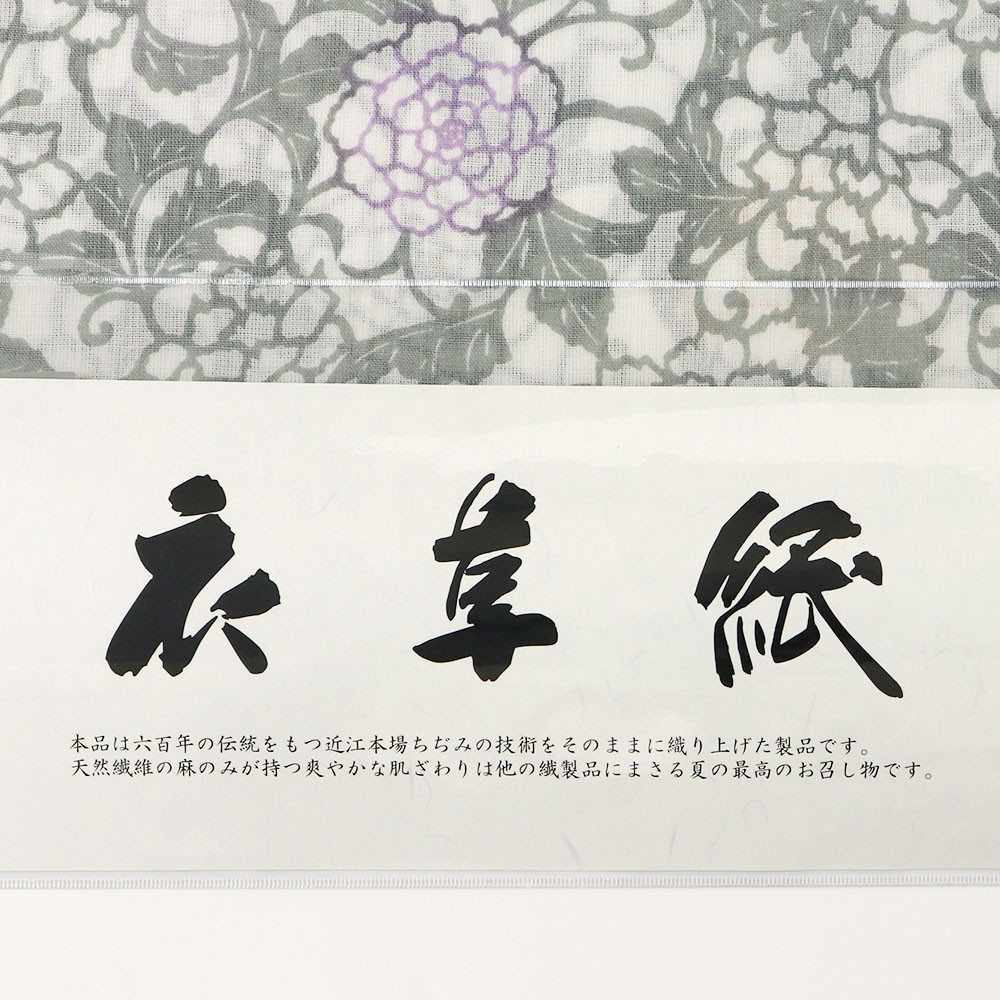 衣草紙
本品は六百年の伝統をもつ近江本場ちぢみの技術をそのままに織り上げた製品です。
天然繊維の麻のみが持つ爽やかな肌ざわりは他の繊製品にまさる夏の最高のお召し物です。